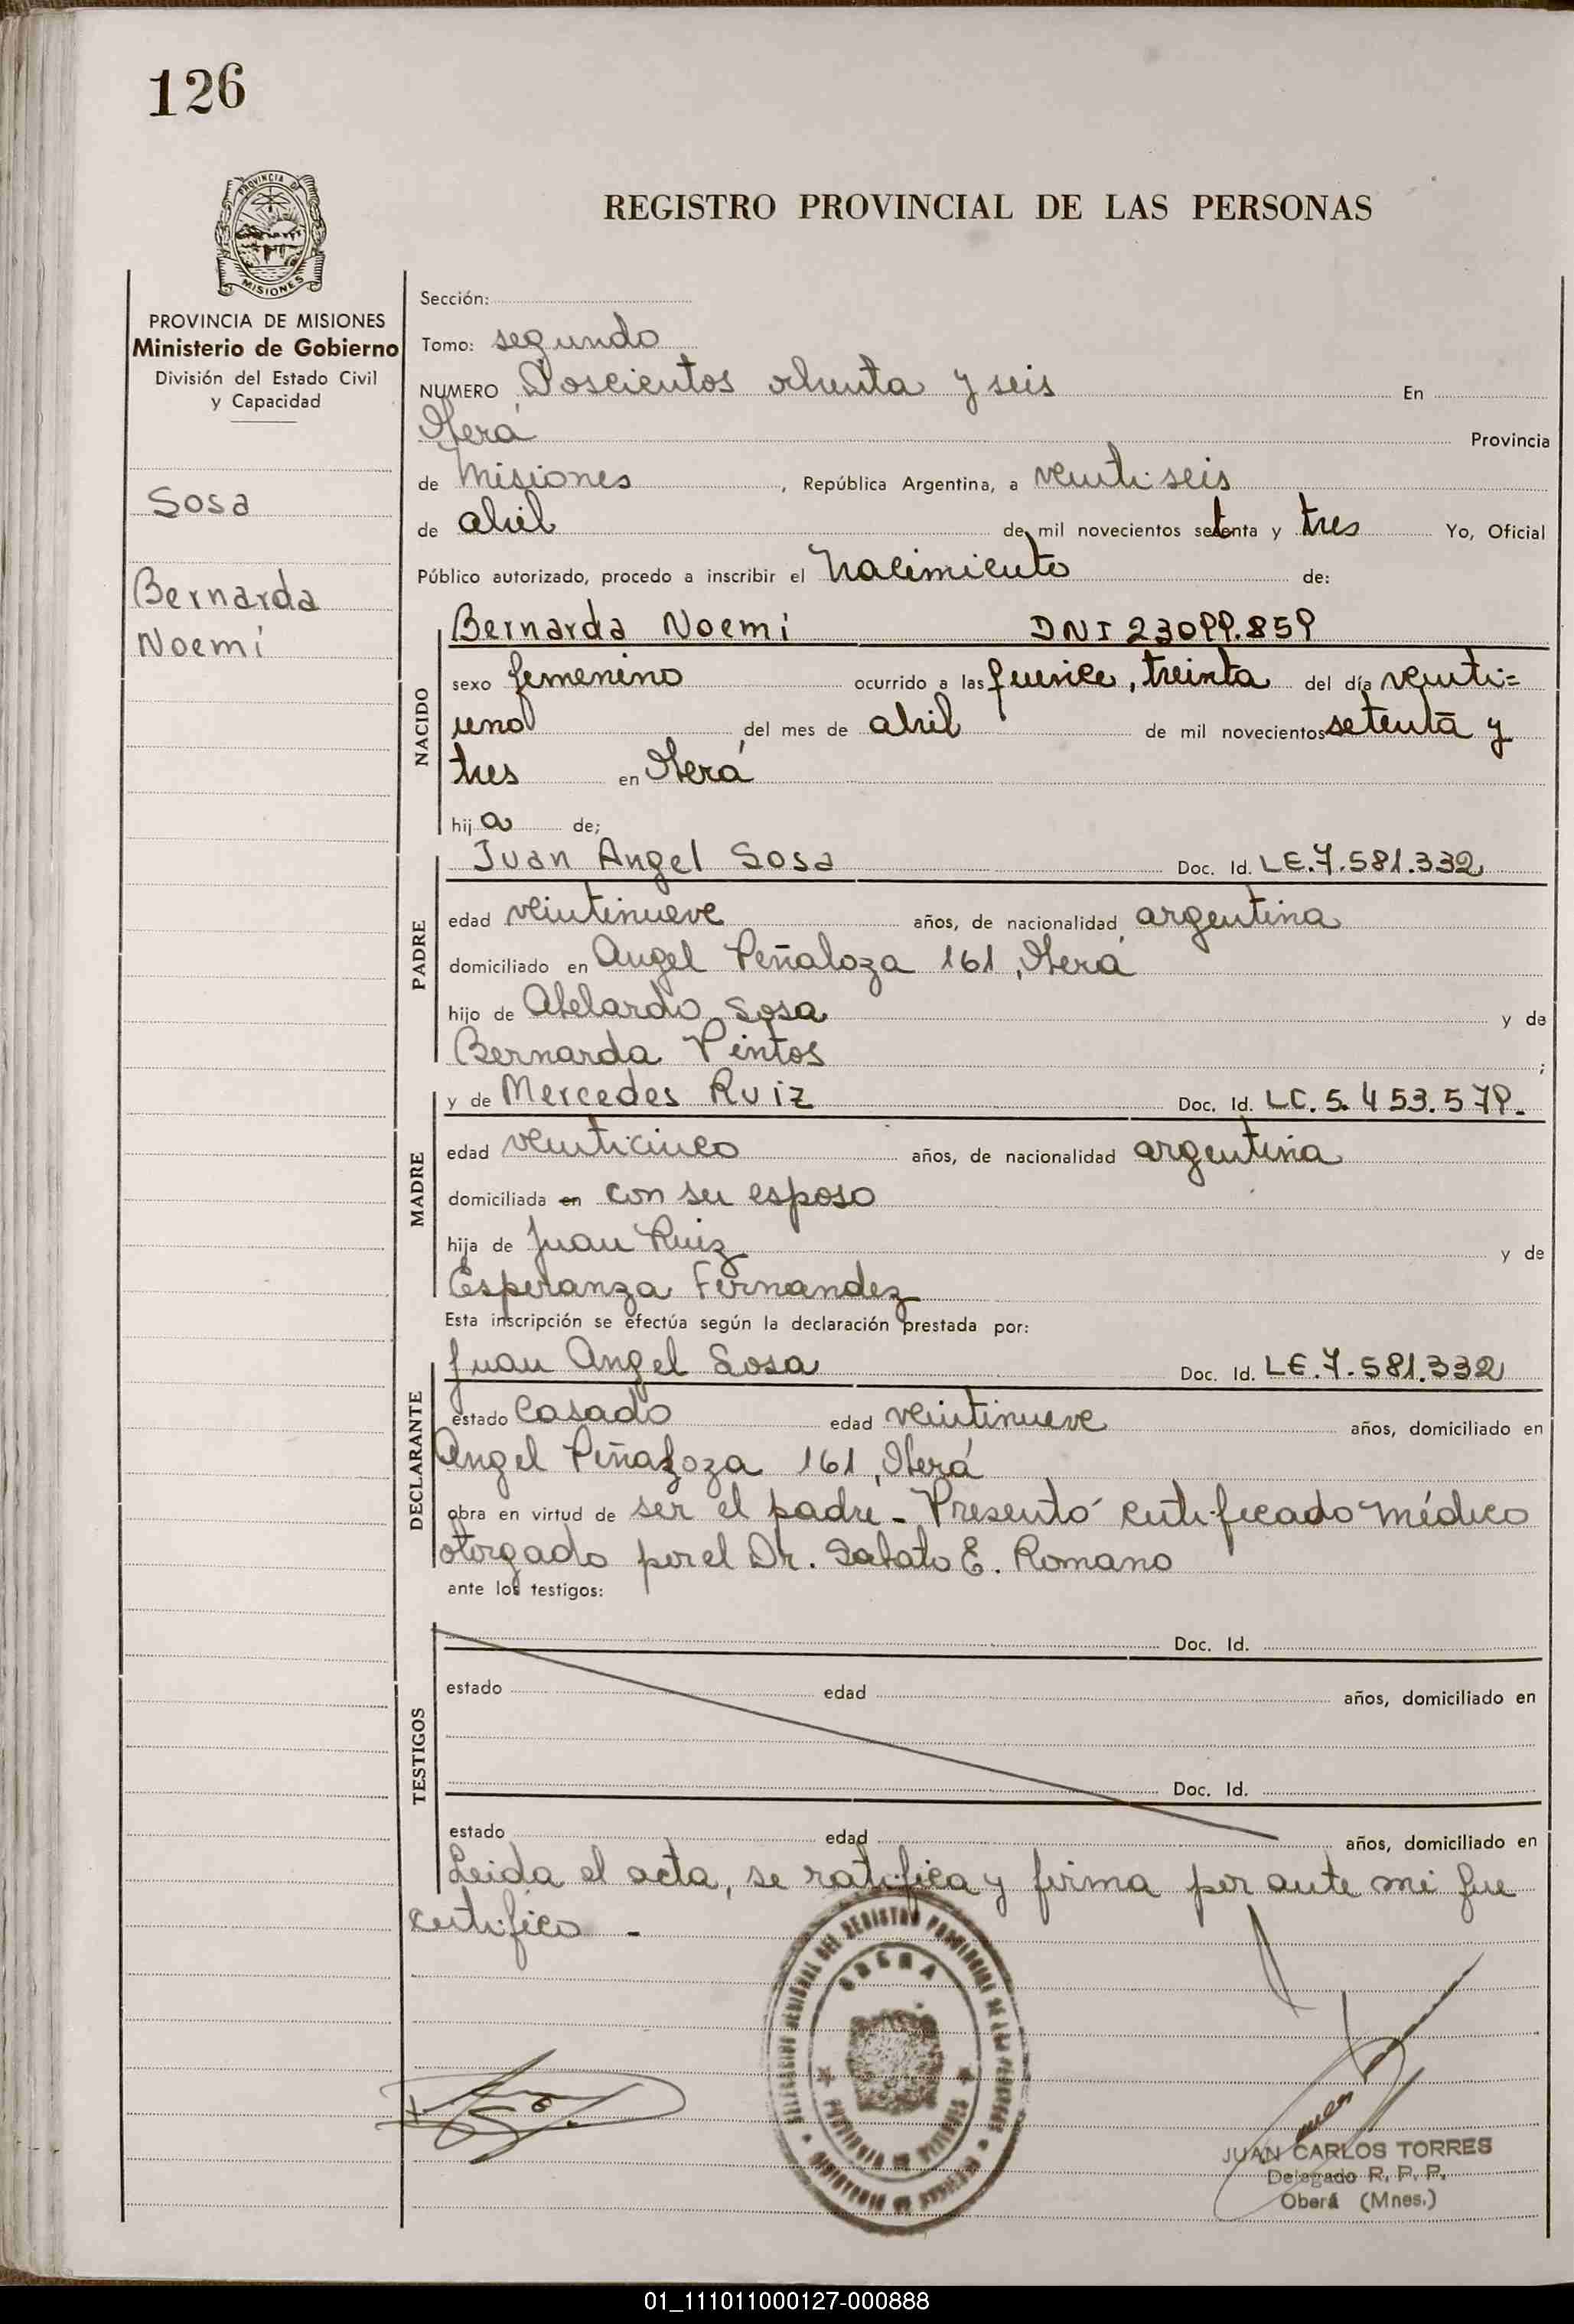 126
PROVINCIA DE
MISIONES
REGISTRO PROVINCIAL DE LAS PERSONAS
PROVINCIA DE MISIONES
Ministerio de Gobierno
División del Estado Civil
y Capacidad
Sosa
Bernarda
Noemí
Sección:
Tomo: segundo
NUMERO Doscientos ochenta y seis En
Oberá Provincia
de Misiones, República Argentina, a veintiseis
de abril de mil novecientos setenta y tres Yo, Oficial
Público autorizado, procedo a inscribir el Nacimiento de:
NACIDO
Bernarda Noemí DNI 23099.859
sexo femenino ocurrido a las quince, treinta del día veinti=
uno del mes de abril de mil novecientos setenta y
tres en Oberá
hij a de;
PADRE
Juan Angel Sosa Doc. Id. LE.7.581.332
edad veintinueve años, de nacionalidad argentina
domiciliado en Angel Peñaloza 161, Oberá
hijo de Abelardo Sosa y de
Bernarda Pintos ;
MADRE
y de Mercedes Ruiz Doc. Id. LC.5.453.579.-
edad veinticinco años, de nacionalidad argentina
domiciliada en con su esposo
hija de Juan Ruiz y de
Esperanza Fernandez
Esta inscripción se efectúa según la declaración prestada por:
DECLARANTE
Juan Angel Sosa Doc. Id. LE.7.581.332
estado casado edad veintinueve años, domiciliado en
Angel Peñaloza 161, Oberá
obra en virtud de ser el padre - Presentó certificado médico
otorgado por el Dr. Sabato E. Romano
ante los testigos:
TESTIGOS
Doc. Id.
estado edad años, domiciliado en
Doc. Id.
estado edad años, domiciliado en
Leida el acta, se ratifica y firma por ante mi que
certifico -
DELEGACION REGIONAL DEL REGISTRO PROVINCIAL DE LAS PERSONAS
OBERA
PROVINCIA DE MISIONES
JUAN CARLOS TORRES
Delegado R. P. P.
Oberá (Mnes.)
01_111011000127-000888